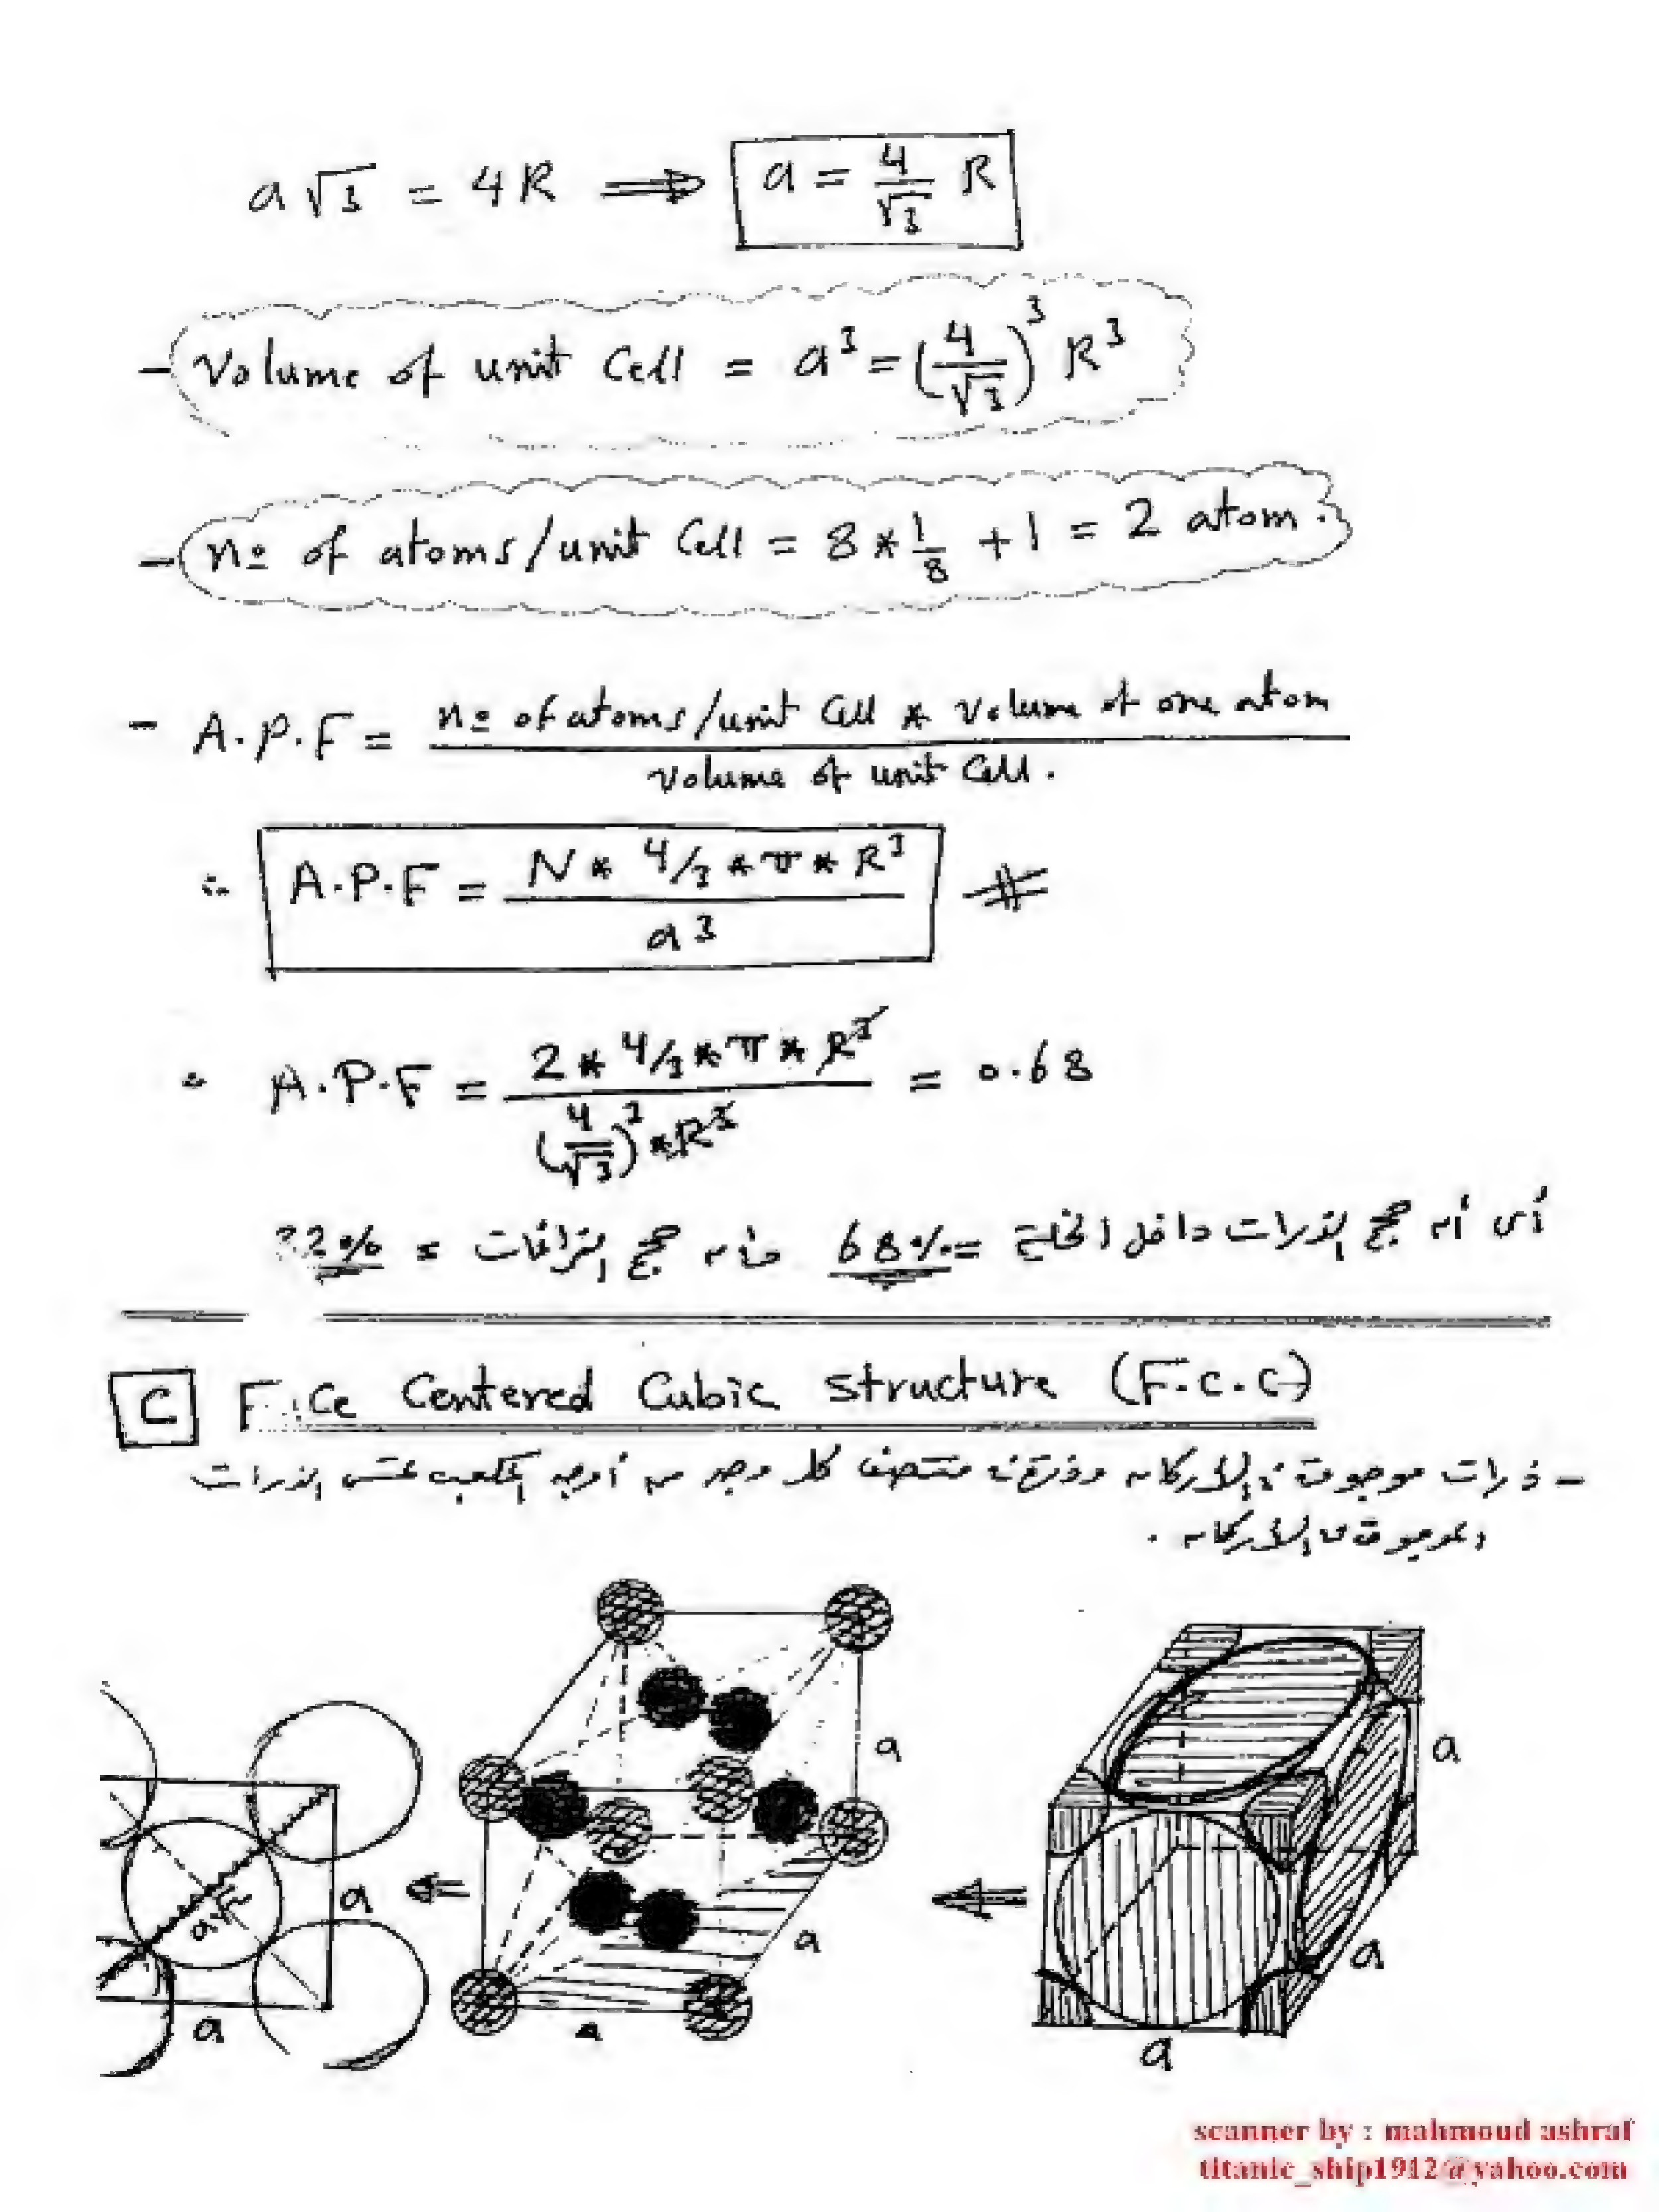 a √3 = 4R ⟹ a = 4/√3 R
- Volume of unit Cell = a³ = (4/√3)³ R³
- nº of atoms/unit Cell = 8 * 1/8 + 1 = 2 atom.
- A.P.F = nº of atoms/unit Cell * volume of one atom / volume of unit Cell.
∴ A.P.F = N * 4/3 * π * R³ / a³ #
∴ A.P.F = 2 * 4/3 * π * R³ / (4/√3)³ * R³ = 0.68
أى أن حجم الذرات داخل الخلية = 68% حجم الفراغات = 32%
C Face Centered Cubic structure (F.C.C)
- ذرات موجودة فى الأركان وذرة فى منتصف كل وجه من أوجه المكعب الذرات
الموجودة فى الأركان .
a
a
a
a
a
a
a
a
scanner by : mahmoud ashraf
titanic_ship1912@yahoo.com